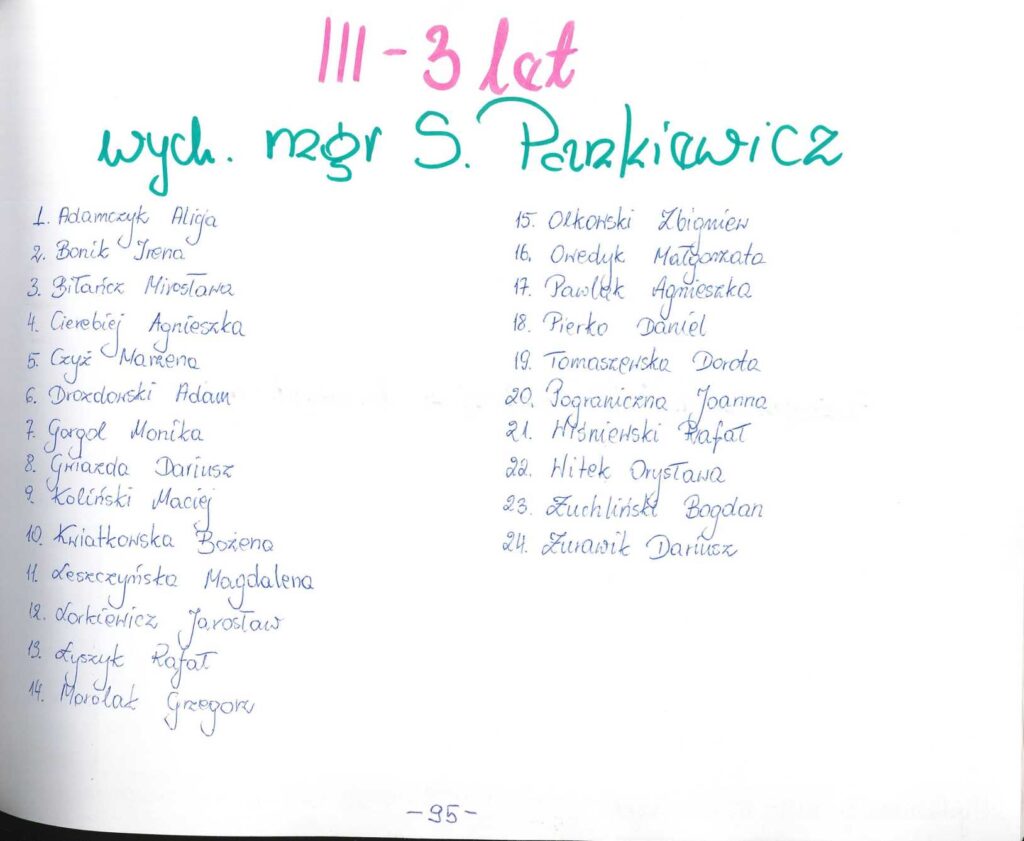 III - 3 lat
wych. mgr S. Paszkiewicz
1. Adamczyk Alicja
2. Bonik Irena
3. Bitańcz Mirosława
4. Cierebiej Agnieszka
5. Czyż Marzena
6. Drozdowski Adam
7. Gorgol Monika
8. Gwiazda Dariusz
9. Koliński Maciej
10. Kwiatkowska Bożena
11. Leszczyńska Magdalena
12. Lorkiewicz Jarosław
13. Łyszyk Rafał
14. Morolak Grzegorz
15. Olkowski Zbigniew
16. Owedyk Małgorzata
17. Pawlak Agnieszka
18. Pierko Daniel
19. Tomaszewska Dorota
20. Pograniczna Joanna
21. Wiśniewski Rafał
22. Witek Orysława
23. Żuchliński Bogdan
24. Żurawik Dariusz
- 95 -